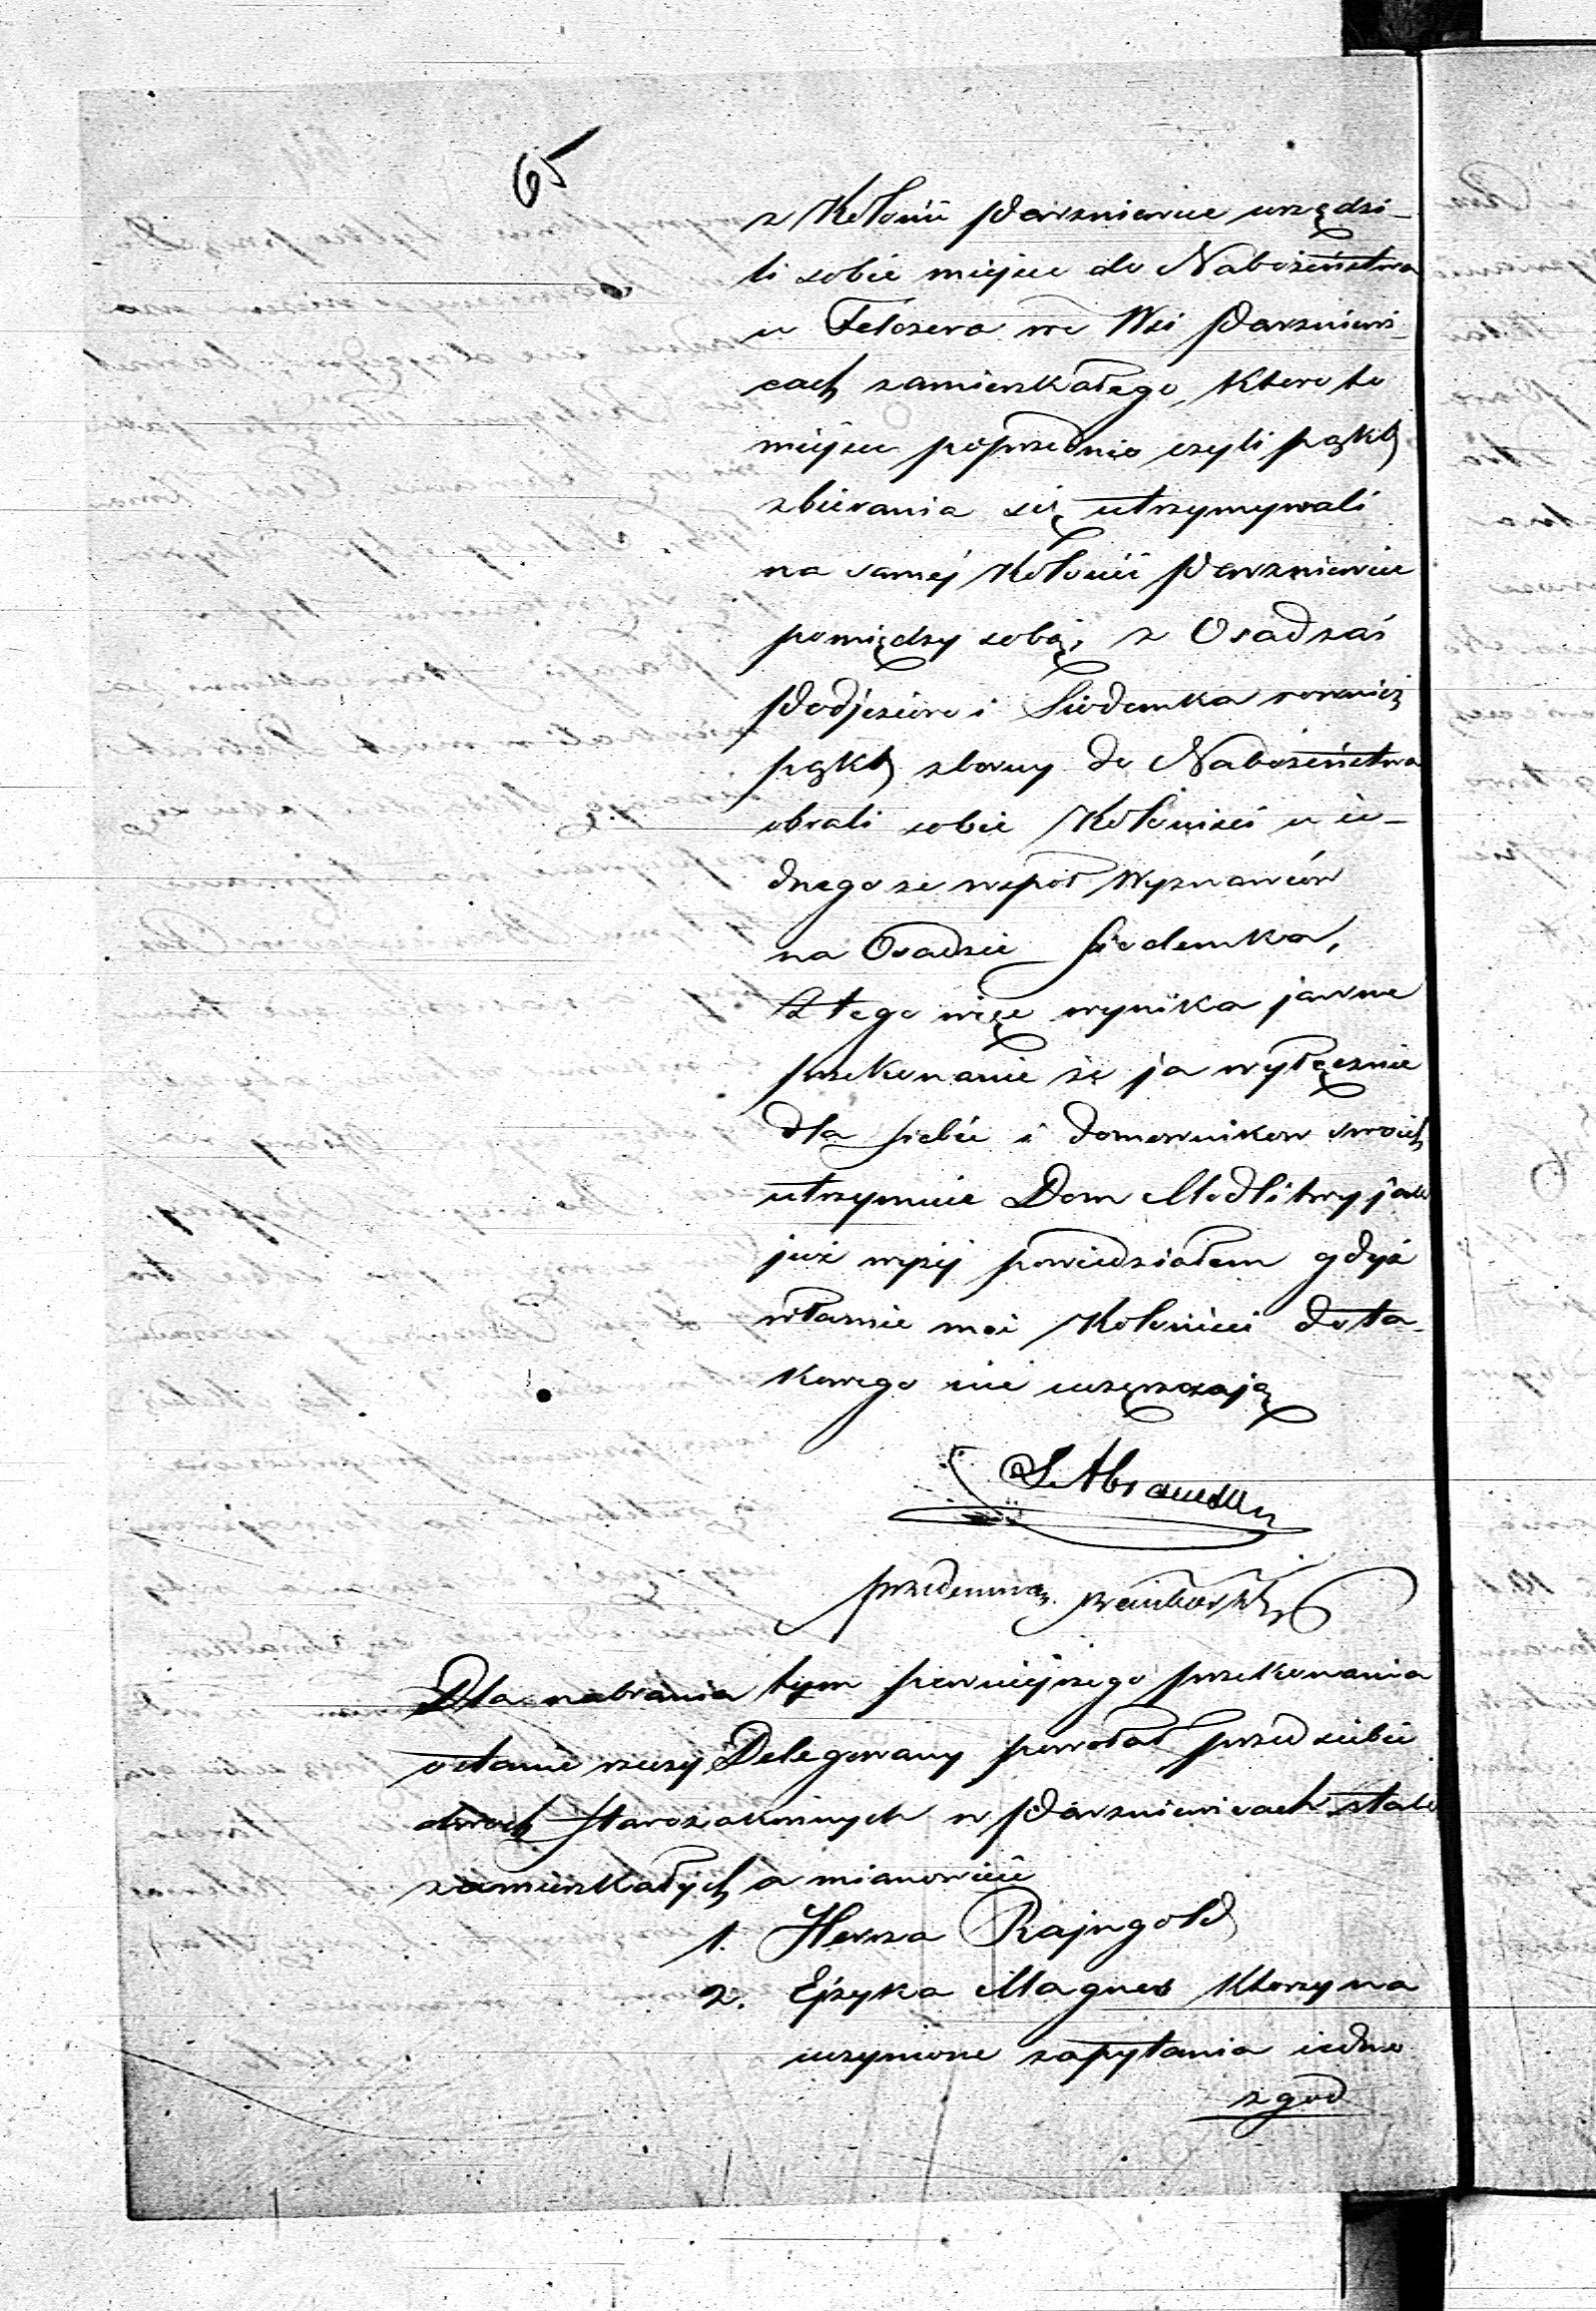 65
z Kolonii Parzniewice urządzi-
li sobie miejsce do Nabożeństwa
u Felczera we Wsi Parzniewi-
cach zamieszkałego, ktore to
miejsce poprzednio czyli pąkt
zbierania się utrzymywali
na samej Kolonii Parzniewice
pomiędzy sobą, z Osad zaś
Podjezioro i Siodemka rownież
pąkt zborny do Nabożeństwa
obrali sobie Koloniści u ie-
dnego ze wspoł Wyznawców
na Osadzie Siodemka,
Z tego więc wynika jawne
przekonanie że ja wyłącznie
dla siebie i domownikow swoich
utrzymuie Dom Modlitwy jak
już wyżej powiedziałem gdyż
własnie moi Koloniści do ta-
kowego nie uczęszczają
przedemną
Dla nabrania tym pewniejszego przekonania
ostanie rzeczy Delegowany powołał przed siebie
dwoch Starozakonnych w Parzniewicach stale
zamieszkałych a mianowicie
1. Hersza Rajngold
2. Ejzyka Magnes ktorzy na
uczynione zapytania iedno
zgod